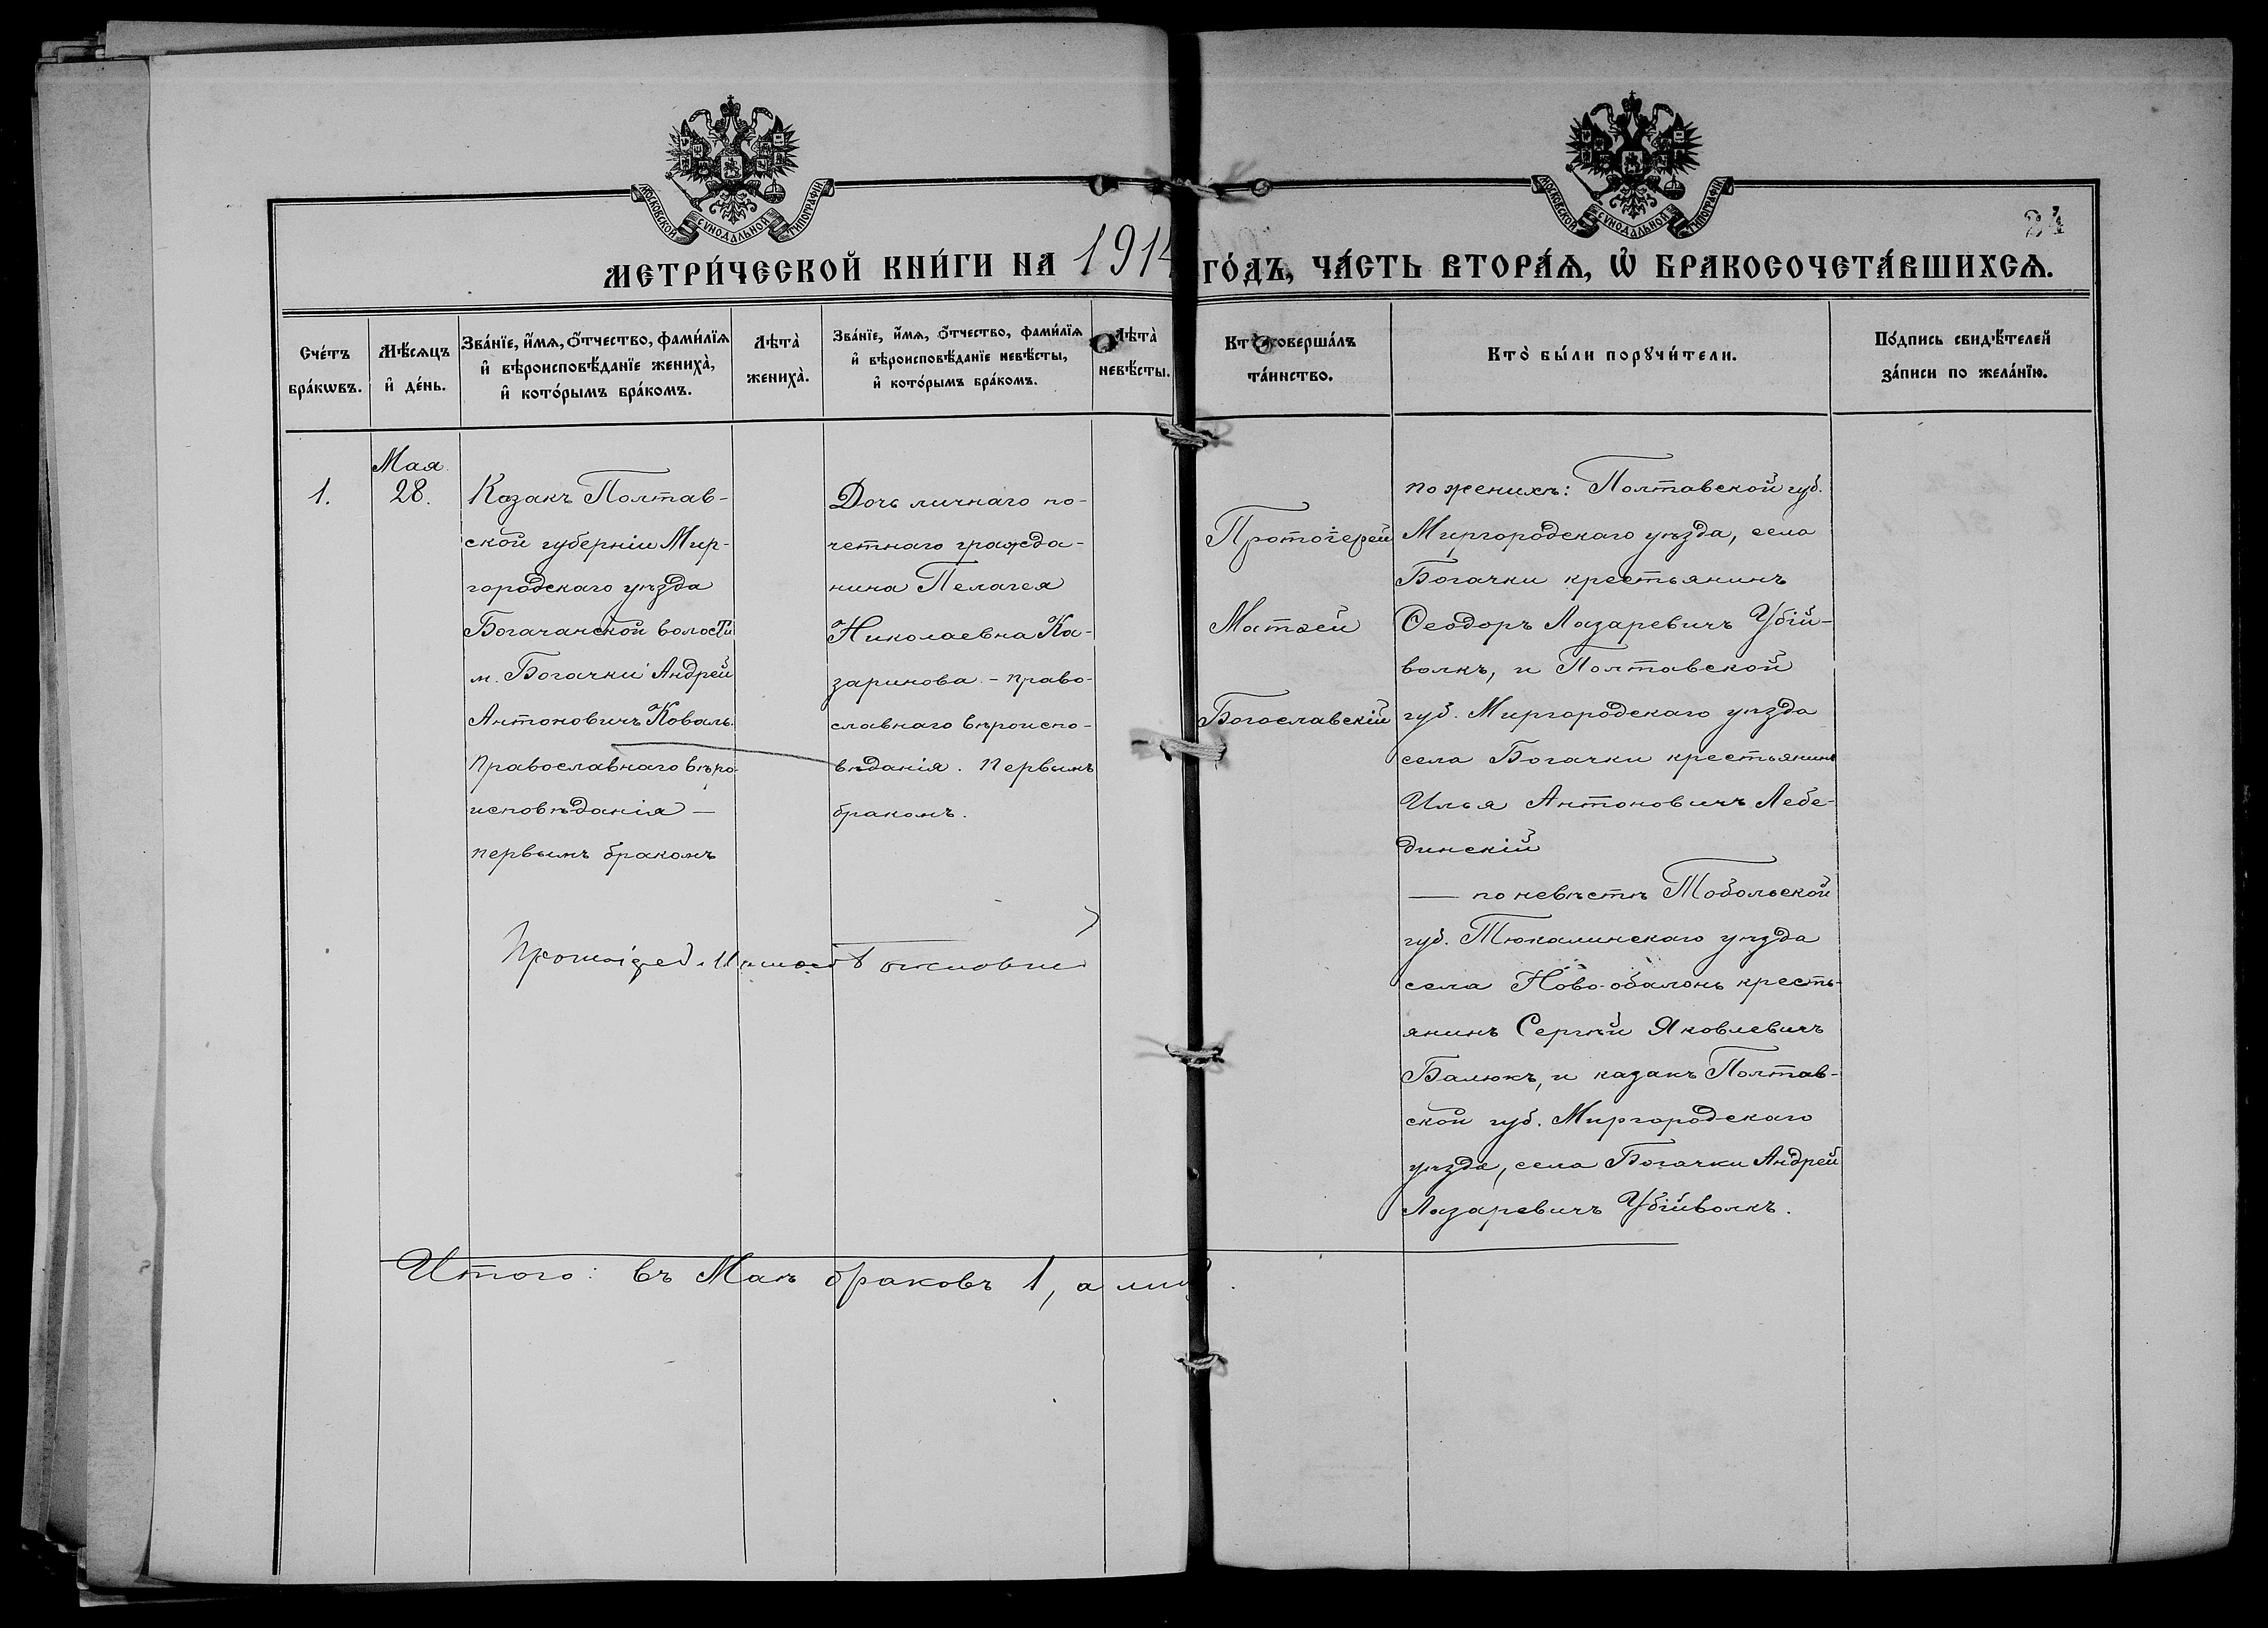 МОСКОВСКОЙ СѴНОДАЛЬНОЙ ТИПОГРАФІИ
МОСКОВСКОЙ СѴНОДАЛЬНОЙ ТИПОГРАФІИ
24
МЕТРИ́ЧЕСКОЙ КНИ́ГИ НА 1914 ГО́ДЪ, ЧА́СТЬ ВТОРА́Ѧ, Ѡ҆ БРАКОСОЧЕТА́ВШИХСѦ.
Сче́тъ бра́кѡвъ.
Мѣ́сѧцъ и҆ де́нь.
Зва́нїе, и҆́мѧ, ѻ҆́тчество, фами́лїѧ и҆ вѣроисповѣ́данїе жениха̀, и҆ кото́рымъ бра́комъ.
Лѣта̀ жениха̀.
Зва́нїе, и҆́мѧ, ѻ҆́тчество, фами́лїѧ и҆ вѣроисповѣ́данїе невѣ́сты, и҆ кото́рымъ бра́комъ.
Лѣта̀ невѣ́сты.
Кто̀ соверша́лъ та́инство.
Кто̀ бы́ли порꙋчи́тели.
По́дпись свидѣ́телей за́писи по жела́нїю.
1.
Мая
28.
Козакъ Полтав-
ской губерніи Мир-
городскаго уѣзда
Богачанской волости
м. Богачки Андрей
Антоновичъ Коваль.
Православнаго вѣро-
исповѣданія —
первымъ бракомъ
Дочь личнаго по-
четнаго гражда-
нина Пелагея
Николаевна Ка-
заринова - право-
славнаго вѣроиспо-
вѣданія. Первымъ
бракомъ.
Протоіерей
Матѳей
Богославскій
по женихѣ: Полтавской губ.
Миргородскаго уѣзда, села
Богачки крестьянинъ
Ѳеодоръ Лазаревичъ Убій-
волкъ, и Полтавской
губ. Миргородскаго уѣзда
села Богачки крестьянинъ
Илья Антоновичъ Лебе-
динскій
— по невѣстѣ Тобольской
губ. Тюкалинскаго уѣзда
села Ново-оболонь кресть-
янинъ Сергѣй Яковлевичъ
Балюкъ, и казакъ Полтав-
ской губ. Миргородскаго
уѣзда, села Богачки Андрей
Лазаревичъ Убійволкъ.
Итого: въ Маѣ браковъ 1, а